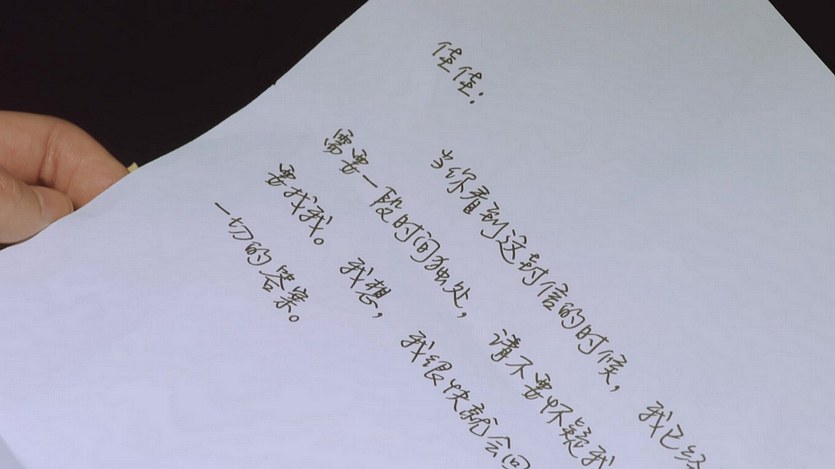 佳佳：
当你看到这封信的时候，我已经
需要一段时间独处，请不要怀疑我
要找我。我想，我很快就会回
一切的答案。